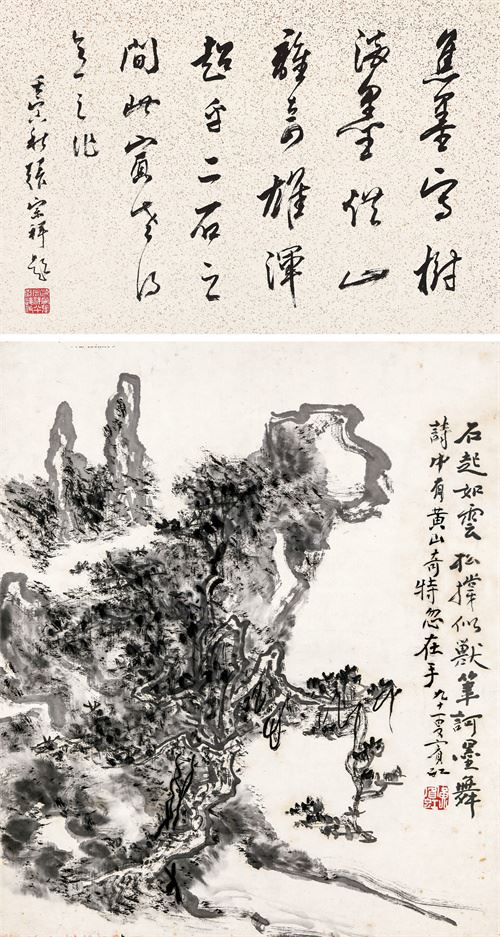 焦墨寫樹
淡墨烘山
離奇雄渾
超乎二石之
間此賓老得
意之作
壬寅秋張宗祥題
石起如雲松撐似獸筆訶墨舞
詩中有黃山奇特忽在手 九十一叟賓虹
黃賓虹